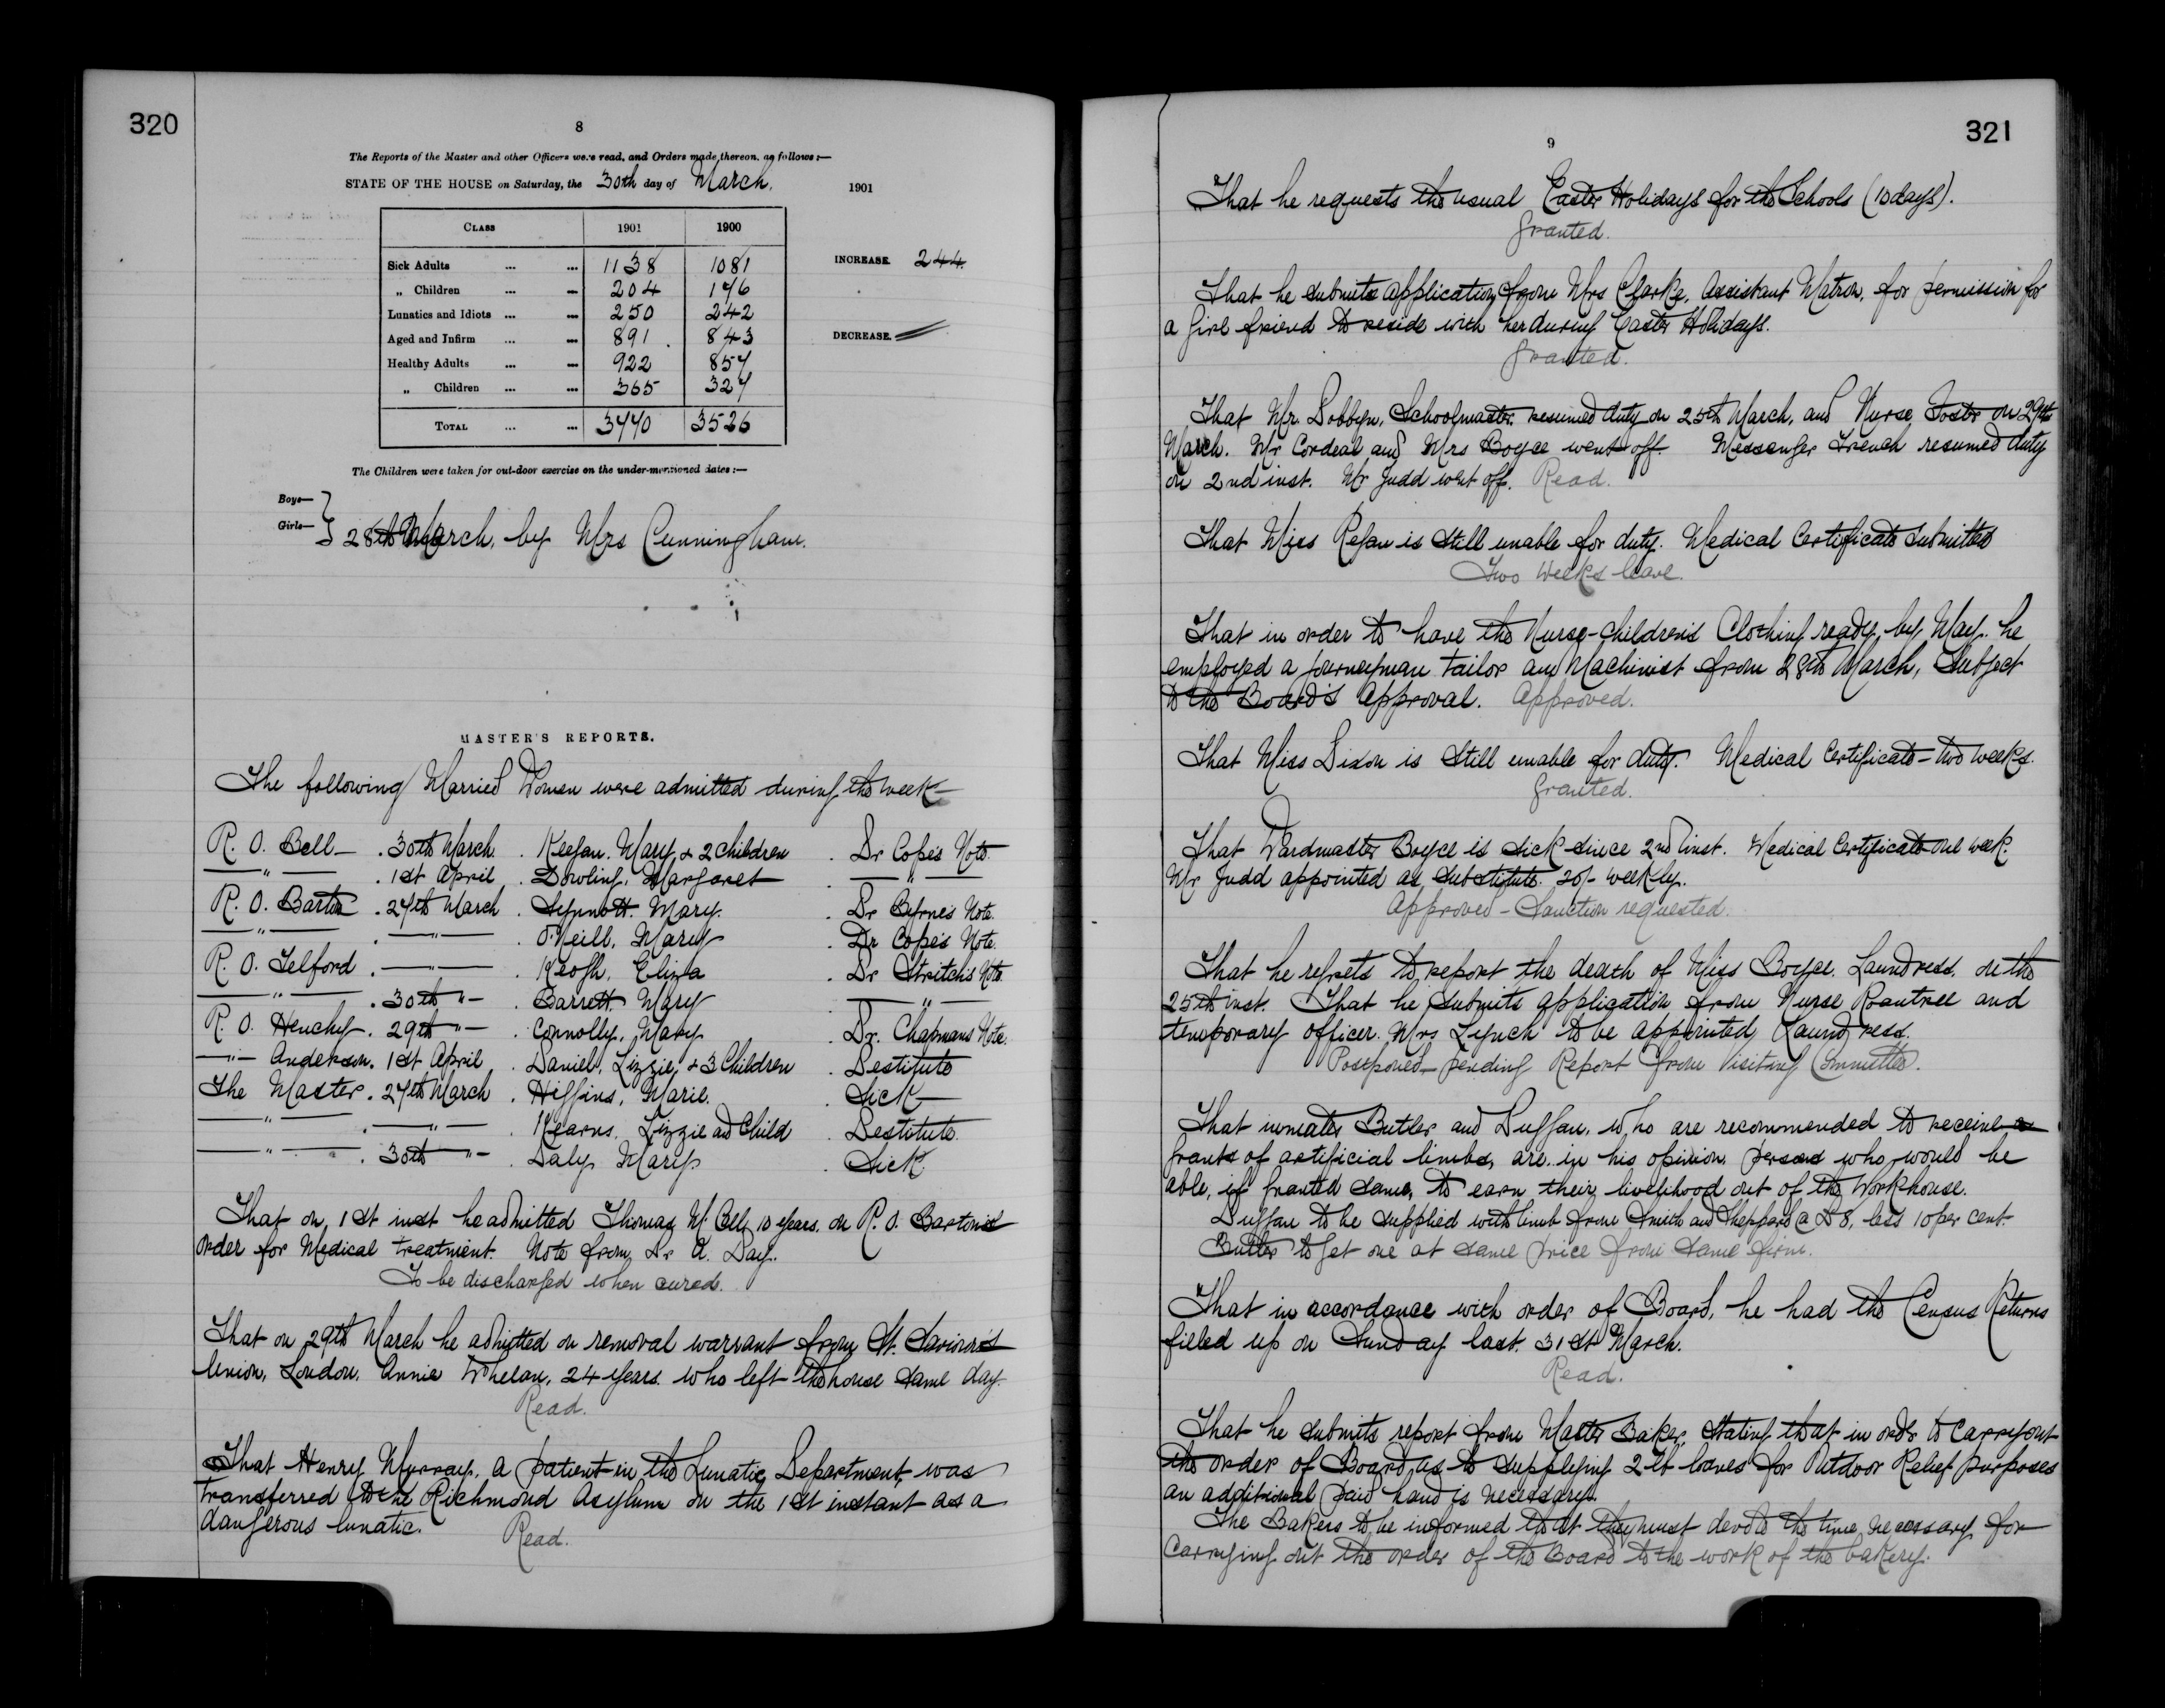 320
8
The Reports of the Master and other Officers were read, and Orders made thereon, as follows:—
STATE OF THE HOUSE on Saturday, the 30th day of March. 1901
CLASS 1901 1900
Sick Adults ... ... 1138 1081
„ Children ... ... 204 176
Lunatics and Idiots ... ... 250 242
Aged and Infirm ... ... 891 843
Healthy Adults ... ... 922 857
„ Children ... ... 365 327
TOTAL ... ... 3770 3526
INCREASE. 244.
DECREASE.
The Children were taken for out-door exercise on the under-mentioned dates:—
Boys—
Girls— } 28th March, by Mrs Cunningham.
MASTER'S REPORTS.
The following Married Women were admitted during the week—
R. O. Bell — . 30th March . Keegan, Mary & 2 children . Dr Cope's Note.
— " — . 1st April . Dowling, Margaret . — " —
R. O. Barton . 27th March . Synnott, Mary. . Dr Byrne's Note.
— " — . — " — . O'Neill, Mary . Dr Cope's Note.
R. O. Telford . — " — . Keogh, Eliza . Dr Stritch's Note
— " — . 30th " — . Barrett, Mary — " —
R. O. Henchy . 29th " — . Connolly, Mary . Dr. Chapmans Note.
— " — Anderson. 1st April . Daniel, Lizzie, & 3 Children . Destitute
The Master . 27th March . Higgins, Marie. . Sick
— " — . — " — . Kearns, Lizzie and Child . Destitute.
— " — . 30th " — . Daly, Mary . Sick
That on 1st inst he admitted Thomas McCell, 10 years, on R. O. Barton's
order for Medical treatment. Note from Dr A. Day.
To be discharged when cured.
That on 29th March he admitted on removal warrant from St. Saviour's
Union, London, Annie Whelan, 24 years, who left the house same day.
Read.
That Henry Murray, a patient in the Lunatic Department, was
transferred to the Richmond Asylum on the 1st instant as a
dangerous lunatic. Read.
321
9
That he requests the usual Easter Holidays for the Schools (10 days).
Granted.
That he submits application from Mrs Clarke, Assistant Matron, for permission for
a girl friend to reside with her during Easter Holidays.
Granted.
That Mr. Dobbyn, Schoolmaster, resumed duty on 25th March, and Nurse Foster on 29th
March. Mr Cordeal and Mrs Boyce went off. Messenger French resumed duty
on 2nd inst. Mr Judd went off. Read.
That Miss Regan is still unable for duty. Medical Certificate submitted
Two weeks leave.
That in order to have the Nurse-children's Clothing ready by May, he
employed a journeyman tailor and Machinist from 28th March, subject
to the Board's approval. Approved.
That Miss Dixon is still unable for duty. Medical Certificate — two weeks.
Granted.
That Wardmaster Boyce is sick since 2nd inst. Medical Certificate one week.
Mr Judd appointed as substitute. 20/- weekly.
Approved — Sanction requested.
That he regrets to report the death of Miss Boyce, Laundress, on the
25th inst. That he submits application from Nurse Rountree and
temporary officer, Mrs Lynch to be appointed Laundress.
Postponed pending Report from Visiting Committee.
That inmates Butler and Duffau, who are recommended to receive
grants of artificial limbs, are, in his opinion, persons who would be
able, if granted same, to earn their livelihood out of the Workhouse.
Duffau to be supplied with limb from Smith and Sheppard @ £8, less 10 per cent.
Butler to get one at same price from same firm.
That in accordance with order of Board, he had the Census Returns
filled up on Sunday last, 31st March.
Read.
That he submits report from Master Baker, stating that in order to carry out
the order of Board as to supplying 2 lb loaves for Outdoor Relief purposes
an additional paid hand is necessary.
The Bakers to be informed that they must devote the time necessary for
carrying out the order of the Board to the work of the bakery.